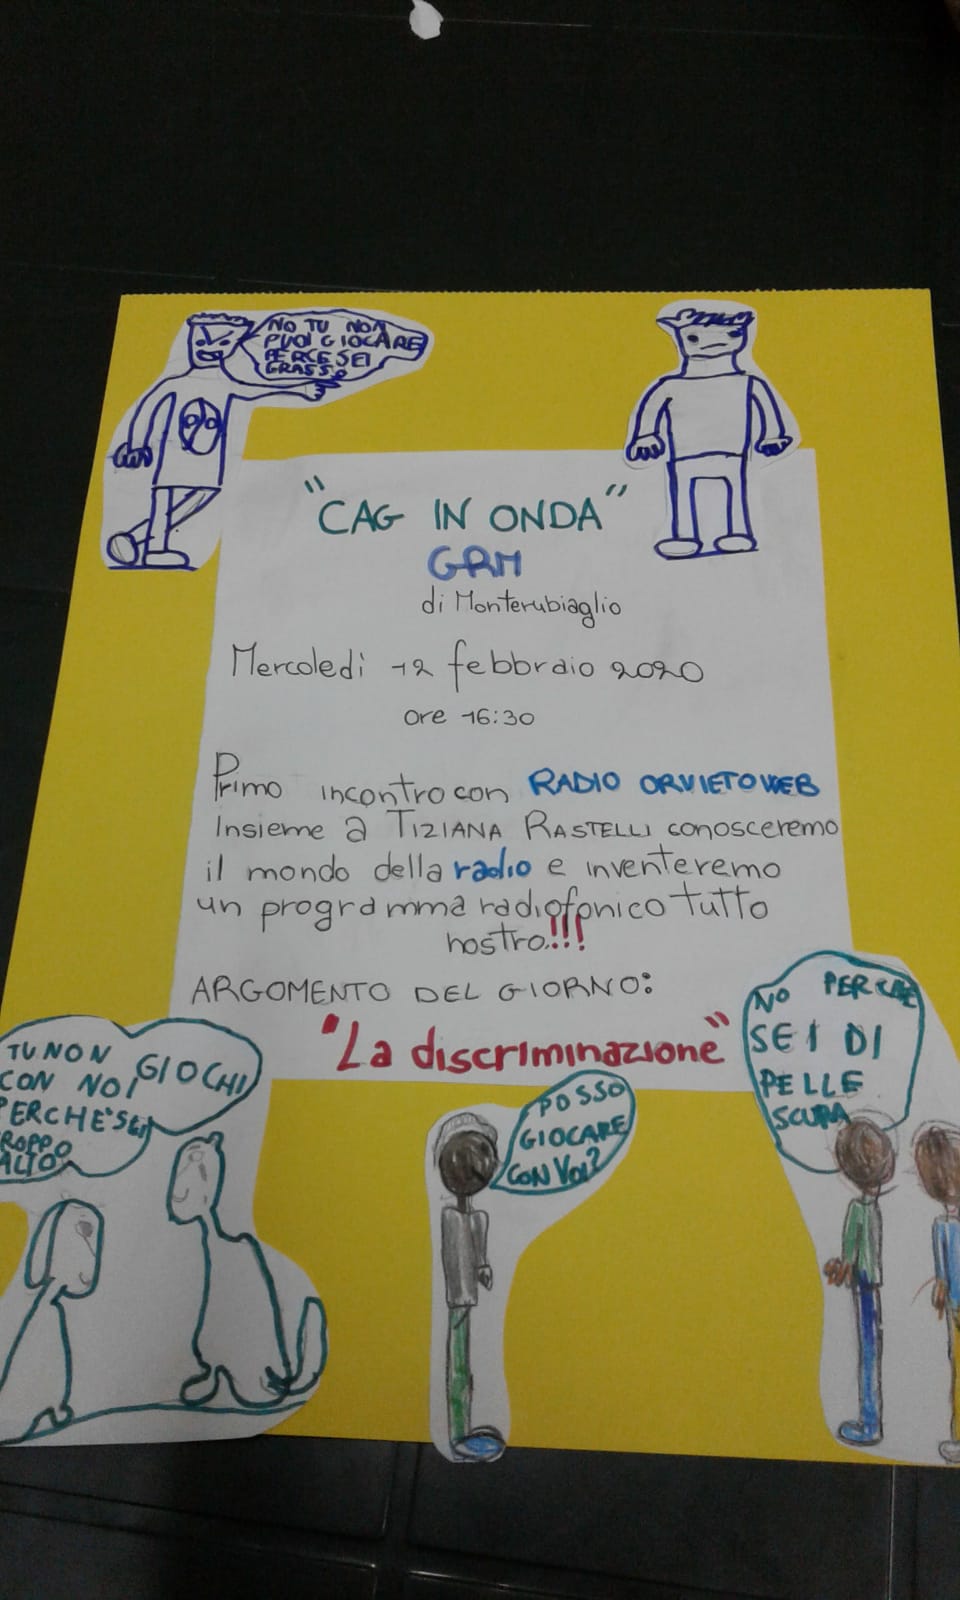 NO TU NON
PUOI GIOCARE
PERCE SEI
GRASSO
"CAG IN ONDA"
GRM
di Monterubiaglio
Mercoledì 12 febbraio 2020
ore 16:30
Primo incontro con RADIO ORVIETO WEB
Insieme a TIZIANA RASTELLI conosceremo
il mondo della radio e inventeremo
un programma radiofonico tutto
nostro!!!
ARGOMENTO DEL GIORNO:
"La discriminazione"
TU NON GIOCHI
CON NOI
PERCHE' SEI
TROPPO
ALTO
POSSO
GIOCARE
CON VOI?
NO PERCHE
SEI DI
PELLE
SCURA